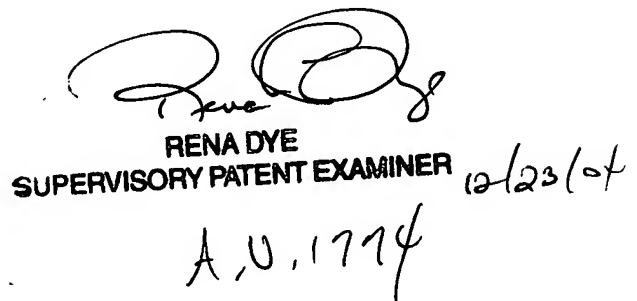 Rena Dye
RENA DYE
SUPERVISORY PATENT EXAMINER 12/23/04
A.U. 1774